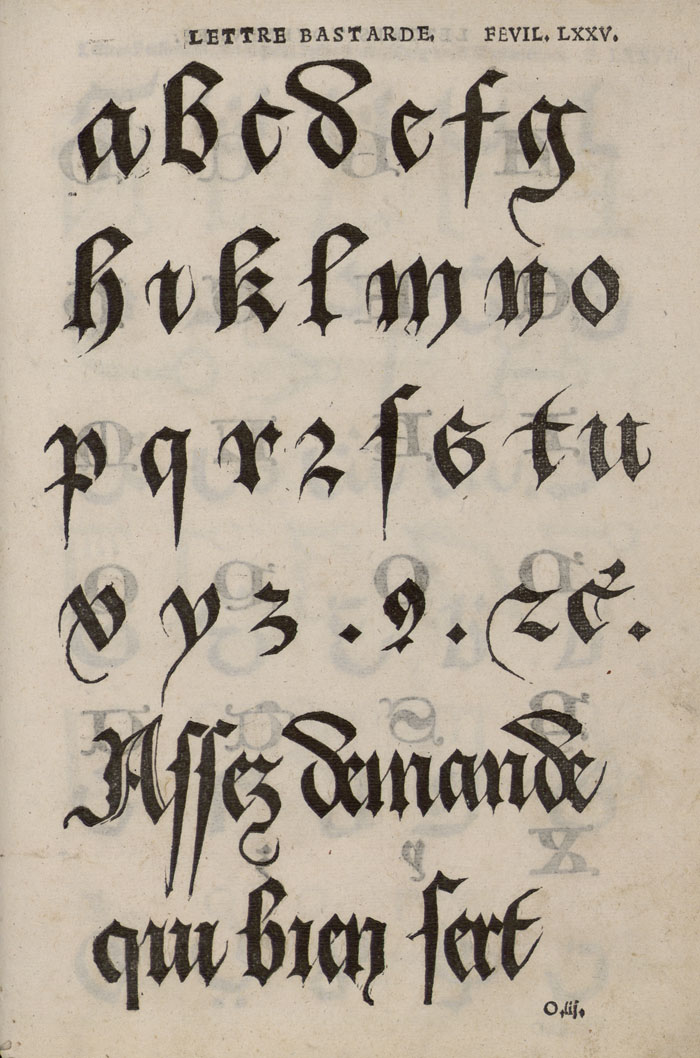 LETTRE BASTARDE. FEVIL. LXXV.
a b c d e f g
h i k l m n o
p q r ꝛ ſ s t u
v y z . ꝯ . ⁊c̃ .
Aſſez demande
qui bien ſert
O.iij.